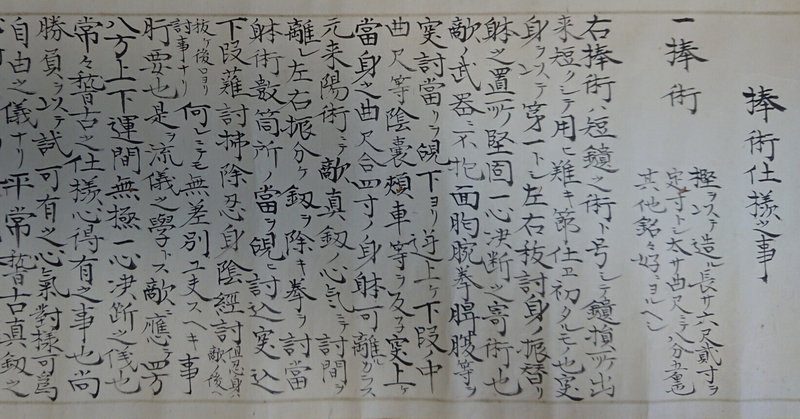 捧術仕様之事
一捧術
樫ヲ以テ造ル長サ六尺貳寸ヲ
定寸トシ太サ曲尺ニテ八分
其他銘々好ヨルヘシ
右捧術ハ短鎖之術ト号シテ鎖損所出
来短クシテ用ニ難キ節仕ヱ初タルモノ也突
身ヲ以テ第一トシ左右抜討身ノ振替リ
躰之置所堅固一心決断之寄術也
敵ノ武器ニ不抱面胸腕拳等ヲ
突討當リヲ下ヨリ逆上ケ下段ノ中
曲尺等陰嚢頬車等ヲ突上ケ
當身之曲尺合四寸ノ身躰可離カラス
元来陽術ニテ敵真釼ノ心氣ニテ討間ヲ
離レ左右振分ケ釼ヲ除キ拳ヲ討當
躰術数箇所ノ當ヲ討込突込
下段薙討掃除忍身陰経討
但忍身ハ敵ノ後ヘ
抜ケ後ロヨリ
討事ナリ
何レニテモ無差別工夫スヘキ事
肝要也是ヲ流儀之學トス敵ニ應テ四方
八方上下運間無極一心決断之儀也
常々稽古之仕様心得有之事也尚
勝負ヲ以テ試可有之心氣對様可為
自由之儀ナリ平常稽古真釼之